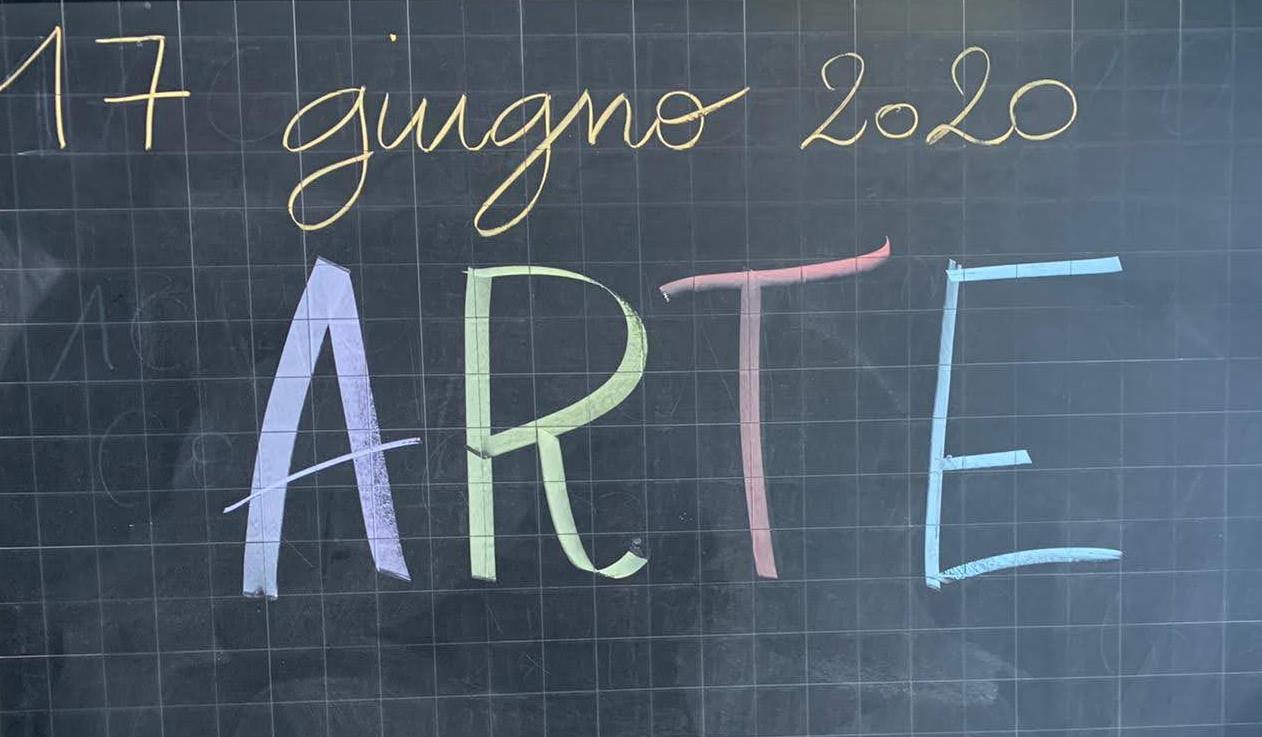 17 giugno 2020
ARTE